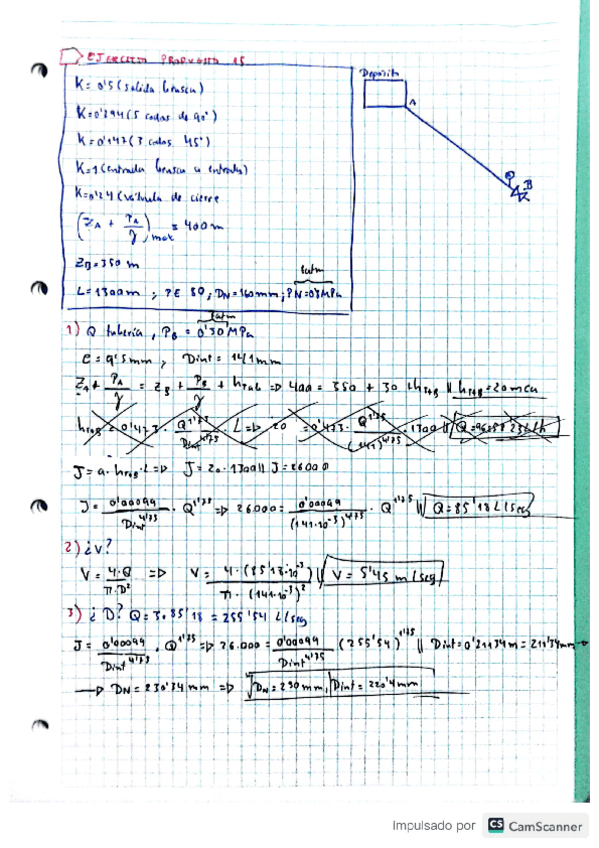 EJERCICIO PROPUESTO 15
K=0'5 (salida brusca)
K=0'294 (5 codos de 90°)
K=0'147 (3 codos 45°)
K=1 (entrada brusca a entrada)
K=0'24 (válvula de cierre
(Z_A + P_A/γ)max = 400 m
Z_B=350 m
8atm
L=1300m ; PE 80; DN=160mm; PN=0'8MPa
Depósito
A
B
3atm
1) Q tubería, P_B = 0'30 MPa
e = 9'5mm, Dint = 141mm
Z_A + P_A/γ = Z_B + P_B/γ + h_TAB => 400 = 350 + 30 + h_TAB || h_TAB=20mca
h_TAB = 0'473 · Q^1'75/Dint^4'75 · L => 20 = 0'473 · Q^1'75/(141)^4'75 · 1300 ||
J = a · h_TAB · L => J = 20 · 1300 || J = 26000
J = 0'00099/Dint^4'75 · Q^1'75 => 26.000 = 0'00099/(141·10^-3)^4'75 · Q^1'75 || Q=85'18 L/seg
2) ¿v?
V = 4·Q/π·D² => V = 4·(85'18·10^-3)/π·(141·10^-3)² || V = 5'45 m/seg
3) ¿D? Q = 3·85'18 = 255'54 L/seg
J = 0'00099/Dint^4'75 · Q^1'75 => 26.000 = 0'00099/Dint^4'75 (255'54)^1'75 || Dint=0'21134m = 211'34mm →
→ DN = 230'34 mm => DN = 250mm, Dint = 220'4mm
Impulsado por CS CamScanner